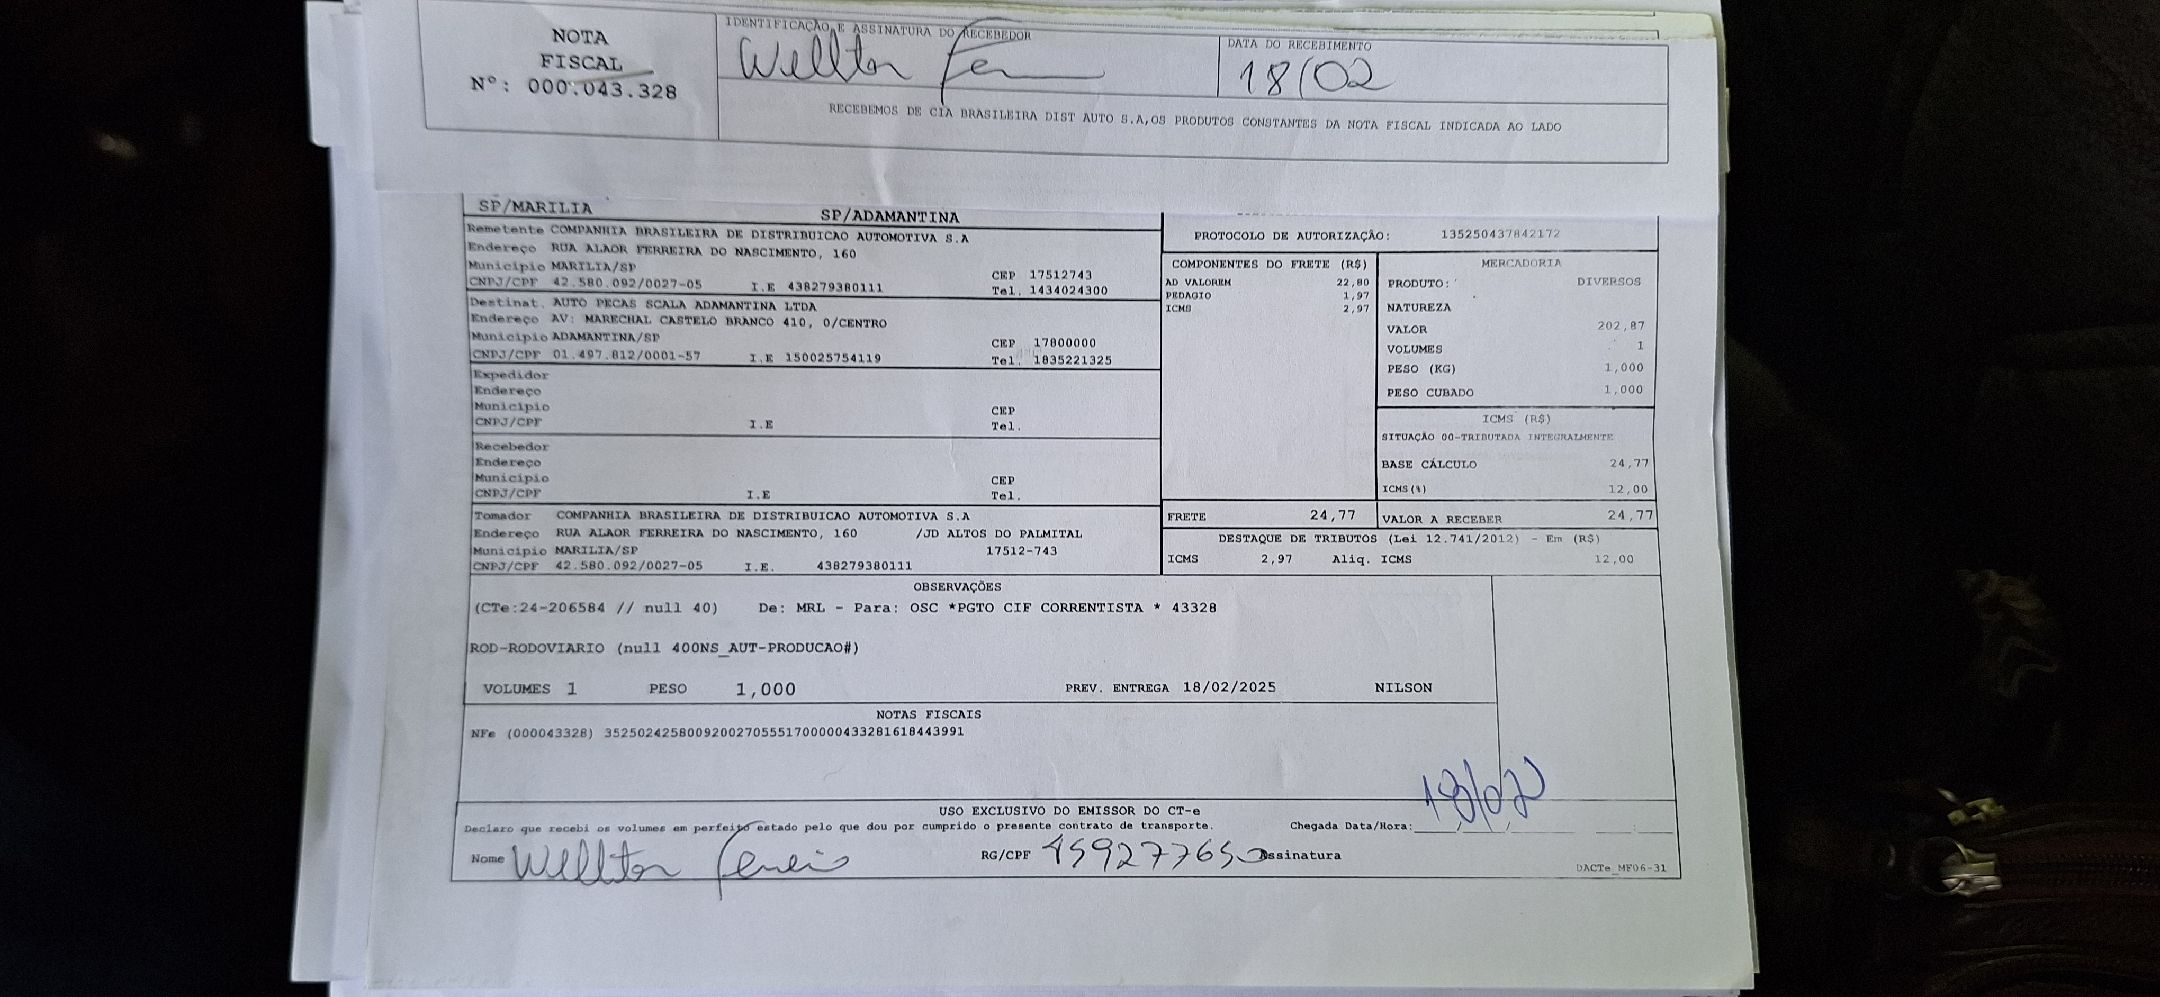 NOTA
FISCAL
Nº: 000.043.328
IDENTIFICAÇÃO E ASSINATURA DO RECEBEDOR
Wellton
DATA DO RECEBIMENTO
18/02
RECEBEMOS DE CIA BRASILEIRA DIST AUTO S.A,OS PRODUTOS CONSTANTES DA NOTA FISCAL INDICADA AO LADO
SP/MARILIA SP/ADAMANTINA
Remetente COMPANHIA BRASILEIRA DE DISTRIBUICAO AUTOMOTIVA S.A
Endereço RUA ALAOR FERREIRA DO NASCIMENTO, 160
Município MARILIA/SP CEP 17512743
CNPJ/CPF 42.580.092/0027-05 I.E 438279380111 Tel. 1434024300
Destinat. AUTO PECAS SCALA ADAMANTINA LTDA
Endereço AV: MARECHAL CASTELO BRANCO 410, 0/CENTRO
Município ADAMANTINA/SP CEP 17800000
CNPJ/CPF 01.497.812/0001-57 I.E 150025754119 Tel. 1835221325
Expedidor
Endereço
Município CEP
CNPJ/CPF I.E Tel.
Recebedor
Endereço
Município CEP
CNPJ/CPF I.E Tel.
Tomador COMPANHIA BRASILEIRA DE DISTRIBUICAO AUTOMOTIVA S.A
Endereço RUA ALAOR FERREIRA DO NASCIMENTO, 160 /JD ALTOS DO PALMITAL
Município MARILIA/SP 17512-743
CNPJ/CPF 42.580.092/0027-05 I.E. 438279380111
PROTOCOLO DE AUTORIZAÇÃO: 135250437842172
COMPONENTES DO FRETE (R$)
AD VALOREM 22,80
PEDAGIO 1,97
ICMS 2,97
FRETE 24,77
MERCADORIA
PRODUTO: DIVERSOS
NATUREZA
VALOR 202,87
VOLUMES 1
PESO (KG) 1,000
PESO CUBADO 1,000
ICMS (R$)
SITUAÇÃO 00-TRIBUTADA INTEGRALMENTE
BASE CÁLCULO 24,77
ICMS(%) 12,00
VALOR A RECEBER 24,77
DESTAQUE DE TRIBUTOS (Lei 12.741/2012) - Em (R$)
ICMS 2,97 Aliq. ICMS 12,00
OBSERVAÇÕES
(CTe:24-206584 // null 40) De: MRL - Para: OSC *PGTO CIF CORRENTISTA * 43328
ROD-RODOVIARIO (null 400NS_AUT-PRODUCAO#)
VOLUMES 1 PESO 1,000 PREV. ENTREGA 18/02/2025 NILSON
NOTAS FISCAIS
NFe (000043328) 35250242580092002705551700000433281618443991
USO EXCLUSIVO DO EMISSOR DO CT-e
Declaro que recebi os volumes em perfeito estado pelo que dou por cumprido o presente contrato de transporte. Chegada Data/Hora:
Nome Wellton RG/CPF 459277650 Assinatura
DACTe_MF06-31